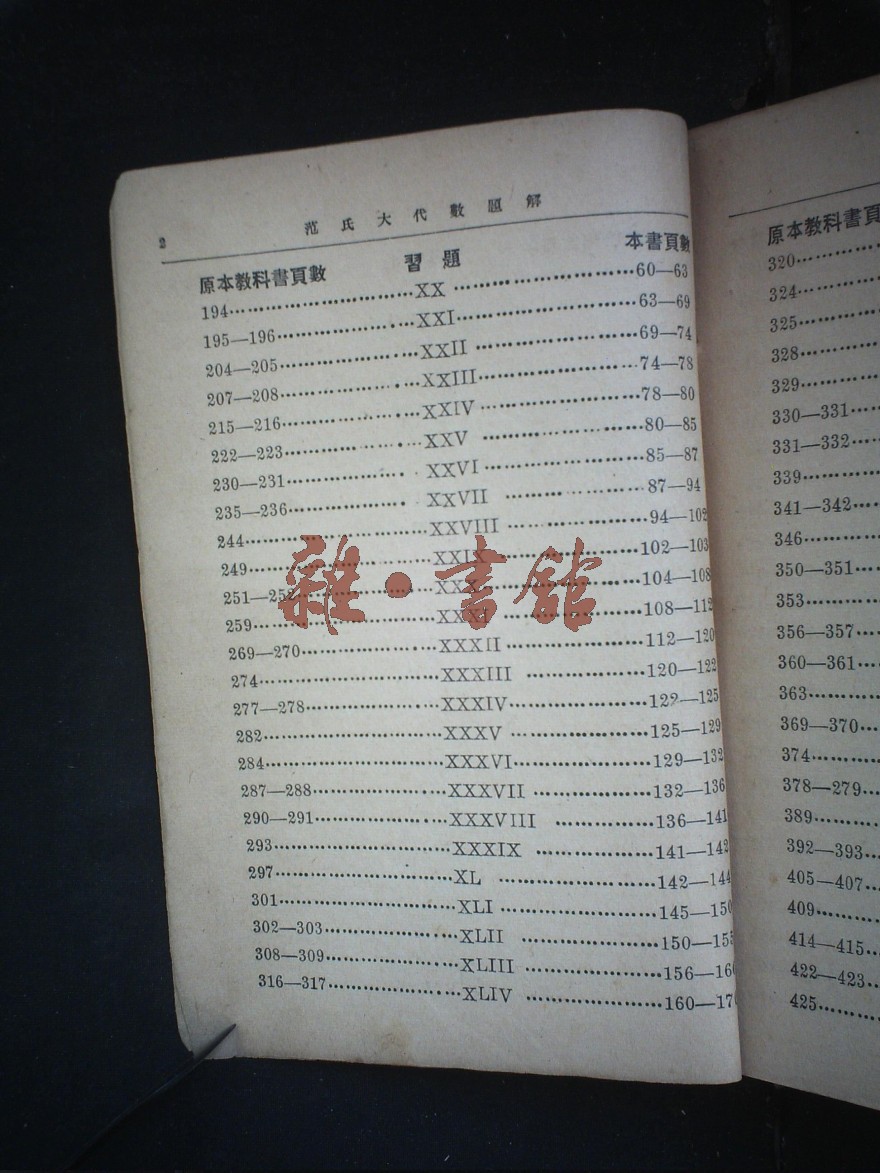 2 范氏大代數題解
原本教科書頁數 習題 本書頁數
194……………………………XX……………………60—63
195—196……………………XXI……………………63—69
204—205……………………XXII……………………69—74
207—208……………………XXIII……………………74—78
215—216……………………XXIV……………………78—80
222—223……………………XXV……………………80—85
230—231……………………XXVI……………………85—87
235—236……………………XXVII……………………87—94
244……………………………XXVIII……………………94—102
249……………………………XXIX……………………102—103
251—252……………………XXX……………………104—108
259……………………………XXXI……………………108—112
269—270……………………XXXII……………………112—120
274……………………………XXXIII……………………120—122
277—278……………………XXXIV……………………122—125
282……………………………XXXV……………………125—129
284……………………………XXXVI……………………129—132
287—288……………………XXXVII……………………132—136
290—291……………………XXXVIII……………………136—141
293……………………………XXXIX……………………141—142
297……………………………XL……………………142—144
301……………………………XLI……………………145—150
302—303……………………XLII……………………150—155
308—309……………………XLIII……………………156—160
316—317……………………XLIV……………………160—170
雜·書舘
原本教科書頁
320……………
324……………
325……………
328……………
329……………
330—331……
331—332……
339……………
341—342……
346……………
350—351……
353……………
356—357……
360—361……
363……………
369—370……
374……………
378—279……
389……………
392—393……
405—407……
409……………
414—415……
422—423……
425……………